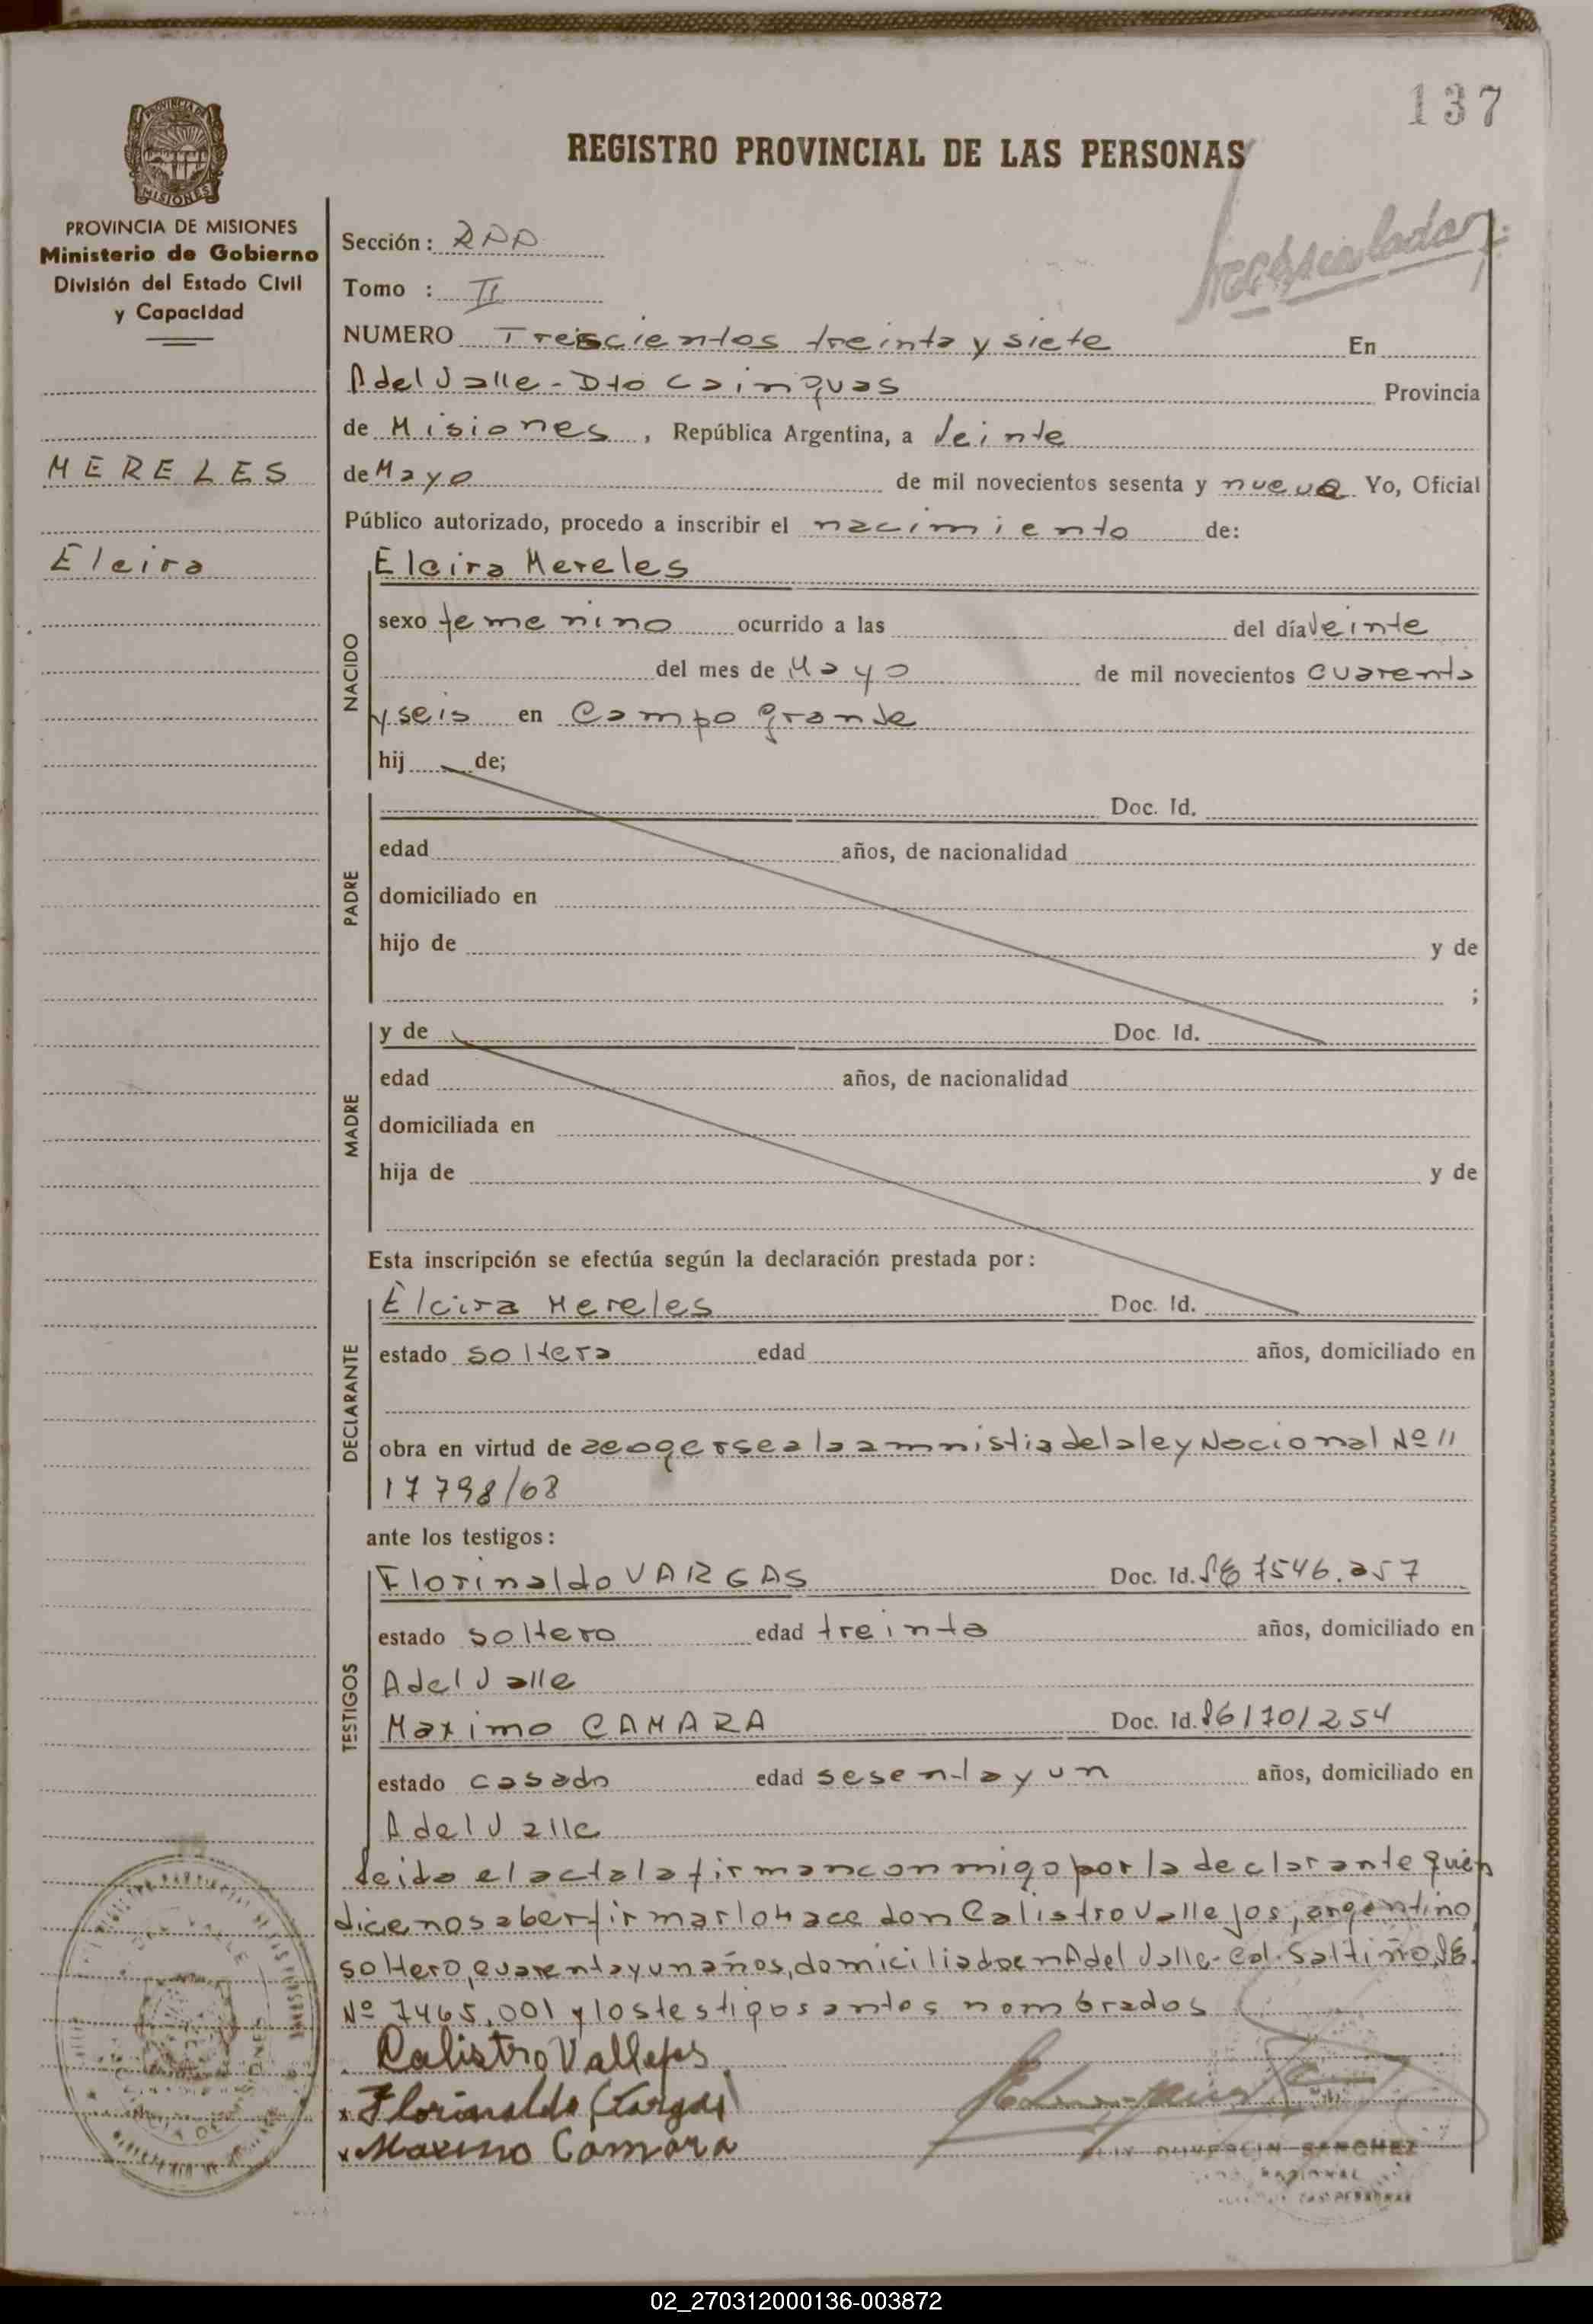 137
REGISTRO PROVINCIAL DE LAS PERSONAS
PROVINCIA DE MISIONES
PROVINCIA DE MISIONES
Ministerio de Gobierno
División del Estado Civil
y Capacidad
MERELES
Elcira
Sección:
Tomo : II
NUMERO Trescientos treinta y siete En
A del Valle - Dto Cainguas Provincia
de Misiones, República Argentina, a Veinte
de Mayo de mil novecientos sesenta y nueve Yo, Oficial
Público autorizado, procedo a inscribir el nacimiento de:
NACIDO
Elcira Mereles
sexo femenino ocurrido a las del día Veinte
del mes de Mayo de mil novecientos cuarenta
y seis en Campo grande
hij de;
PADRE
Doc. Id.
edad años, de nacionalidad
domiciliado en
hijo de y de
;
MADRE
y de Doc. Id.
edad años, de nacionalidad
domiciliada en
hija de y de
Esta inscripción se efectúa según la declaración prestada por:
DECLARANTE
Elcira Mereles Doc. Id.
estado soltera edad años, domiciliado en
obra en virtud de acogerse a la amnistia de la ley Nacional Nº 11
17798/68
ante los testigos:
TESTIGOS
Florinaldo VARGAS Doc. Id. 7546.257
estado soltero edad treinta años, domiciliado en
A del Valle
Maximo CAMARA Doc. Id.
estado casado edad sesenta y un años, domiciliado en
A del Valle
Leida el acta la firman conmigo por la declarante quien
dice no saber firmar lo hace don Calistro Vallejos, argentino
soltero, cuarenta y un años, domiciliado en A del Valle - Col. Saltiño,
Nº 7465.001 y los testigos antes nombrados
Calistro Vallejos
x Florinaldo Vargas
x Maximo Camara
SANCHEZ
02_270312000136-003872